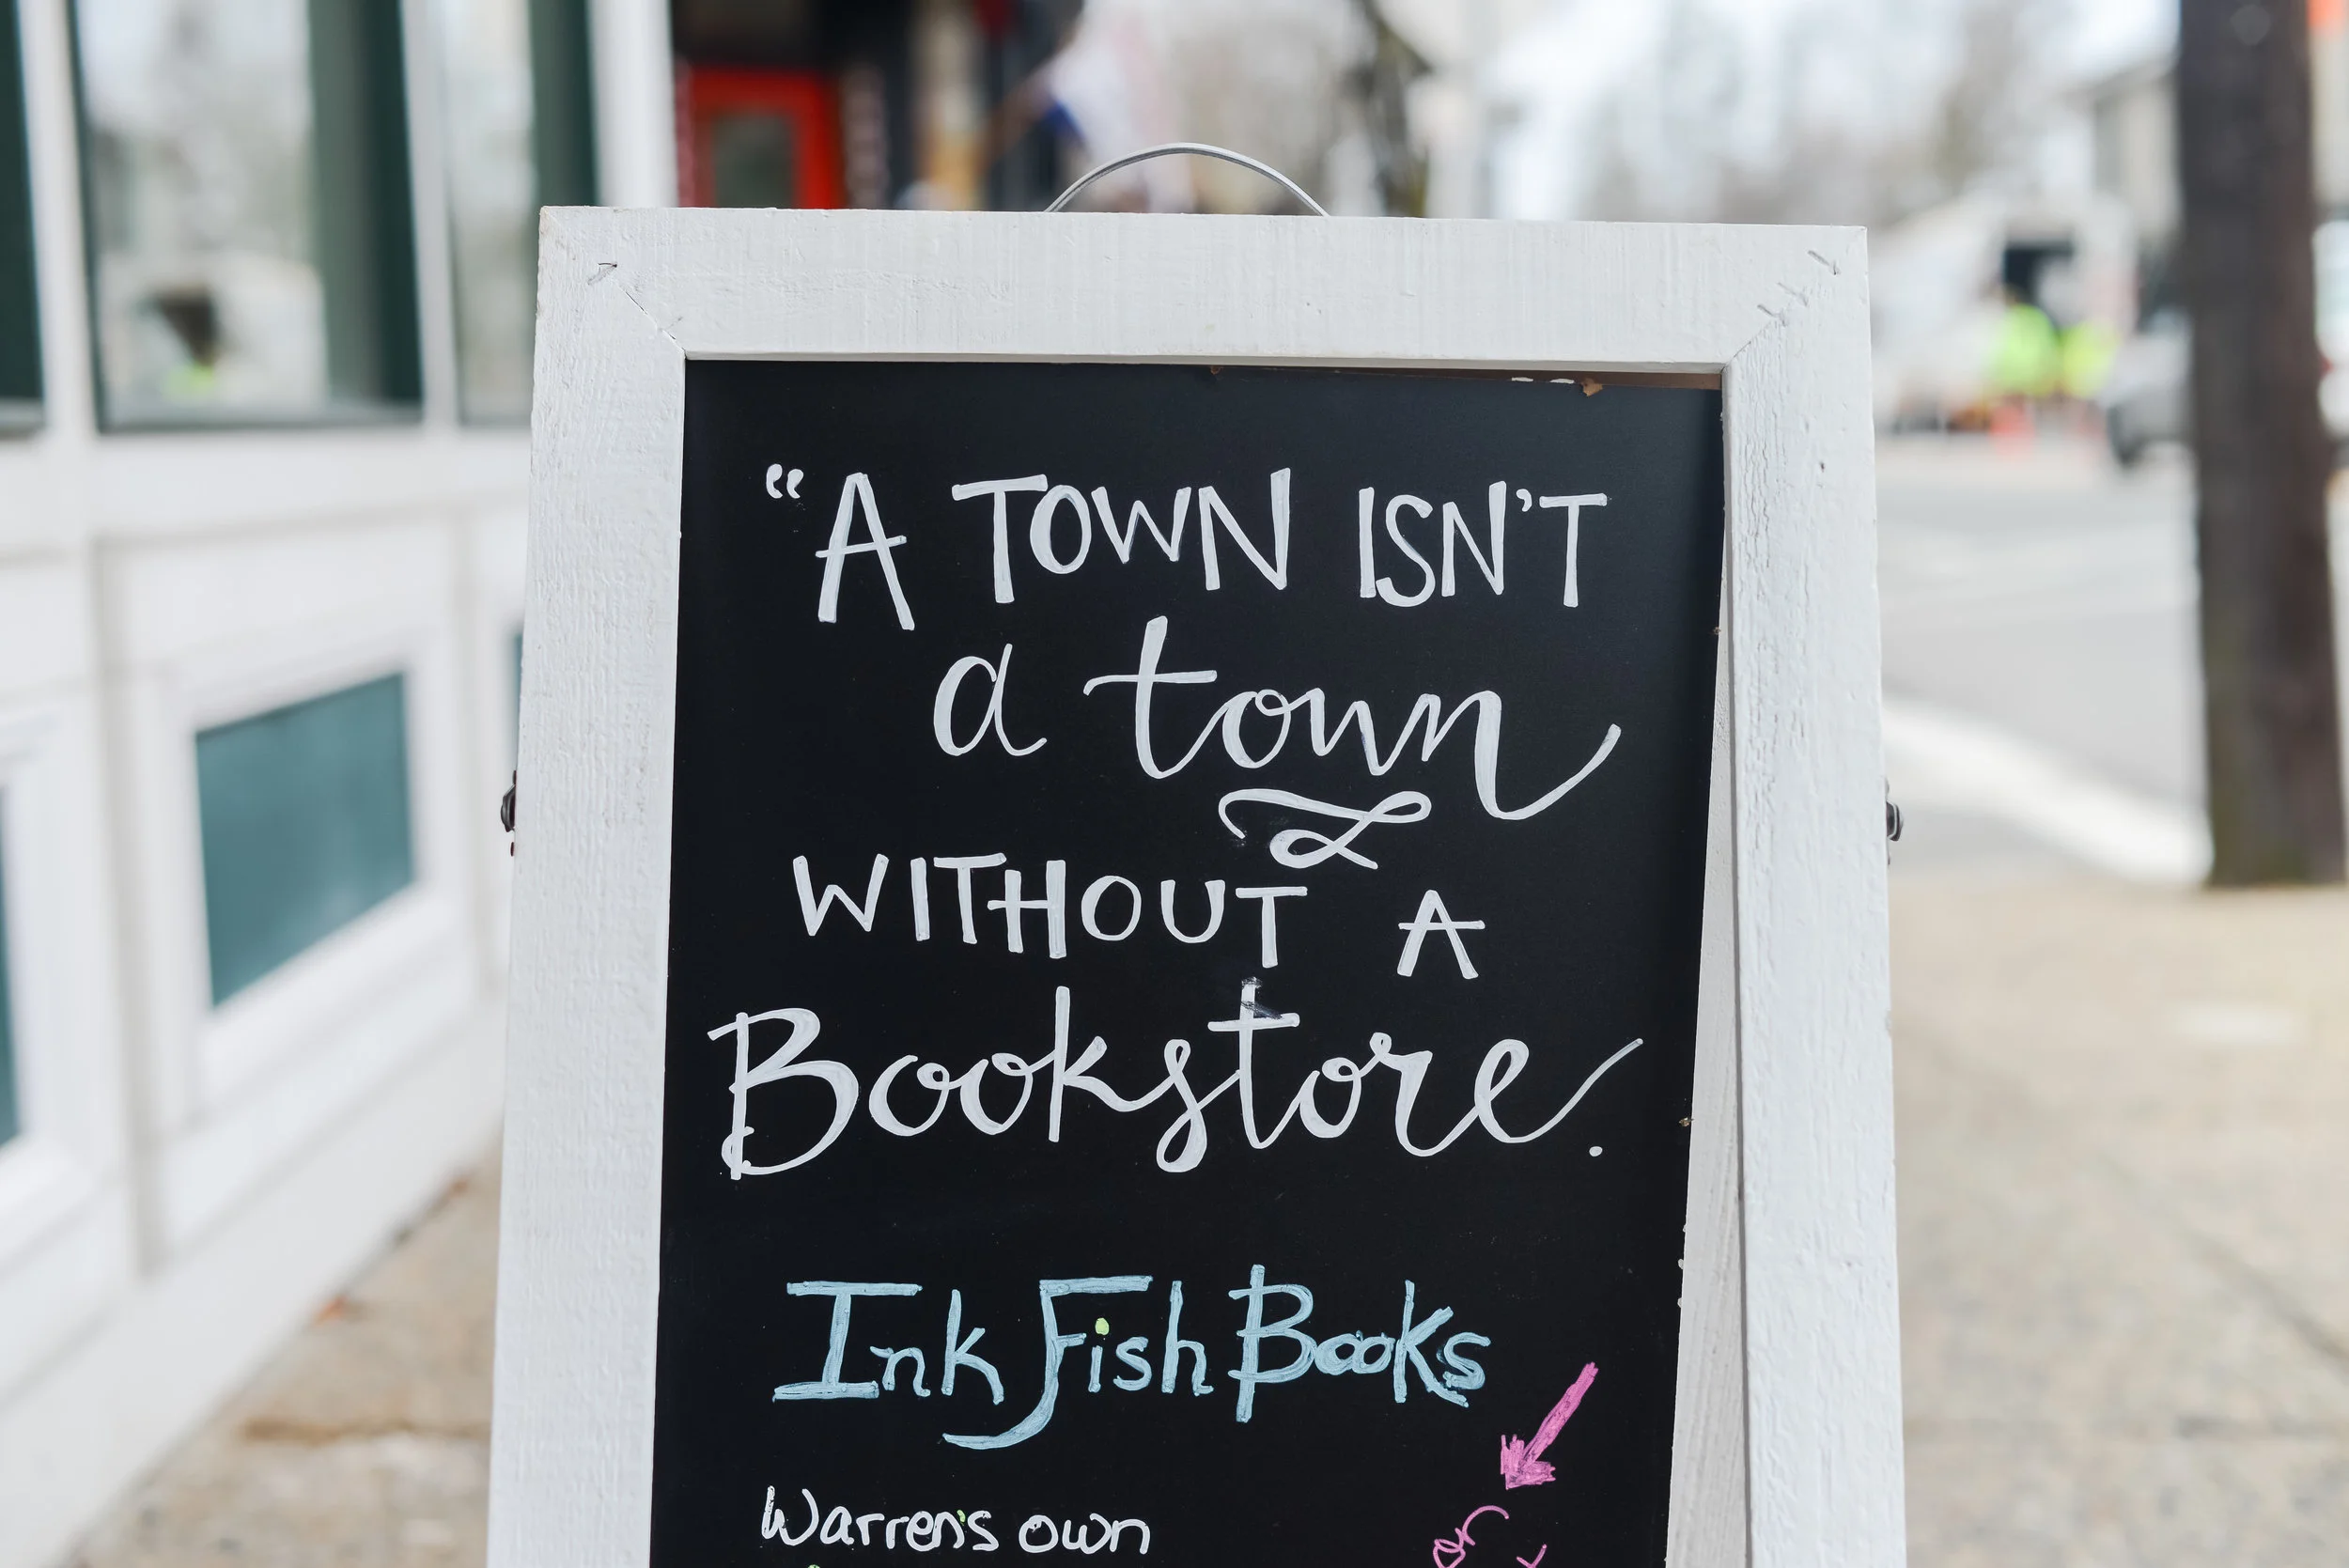 “A TOWN ISN’T
a town
WITHOUT A
Bookstore.
Ink Fish Books
Warren's own